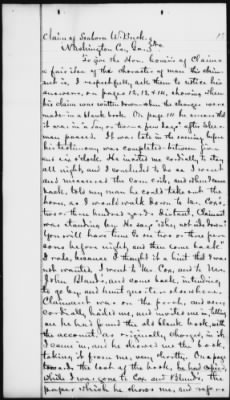 Claim of Seaborn W. Buck,
Washington Co., Ga.
To give the Hon. Comm'rs of Claims
a fair idea of the character of man this claim-
ant is, I respectfully ask them to notice his
answers, on pages 12, 13, & 14, showing when
his claim was written down when the charges were
made in a blank book. On page 111 he answers that
it was in a "day or two or a few days" after Sher-
man passed. It was late in the evening before
his testimony was completed between five
and six o'clock. He invited me cordially to stay
all night, and I concluded to do so. I went
and measured the corn crib, and when I came
back, told my man he could take out the
horse, as I would walk down to Mr. Cox's,
two or three hundred yards distant. Claimant
was standing by. He says "why not ride down?
You will have time to see two or three per-
sons before night, and then come back"
I rode, because I thought it a hint that I was
not wanted. I went to Mr. Cox, and to Mr.
John Blands, and came back, intending
to go by and hunt quarters elsewhere.
Claimant was on the porch, and very
cordially hailed me, and invited me in, telling
me he had found the old blank book, with
the account, as originally charged, in it
I came in, and he showed me the book,
taking it from me, very shortly. On a page
towards the back of the book, he had copied,
while I was gone to Cox and Blands, the
paper which he shows me, and refers